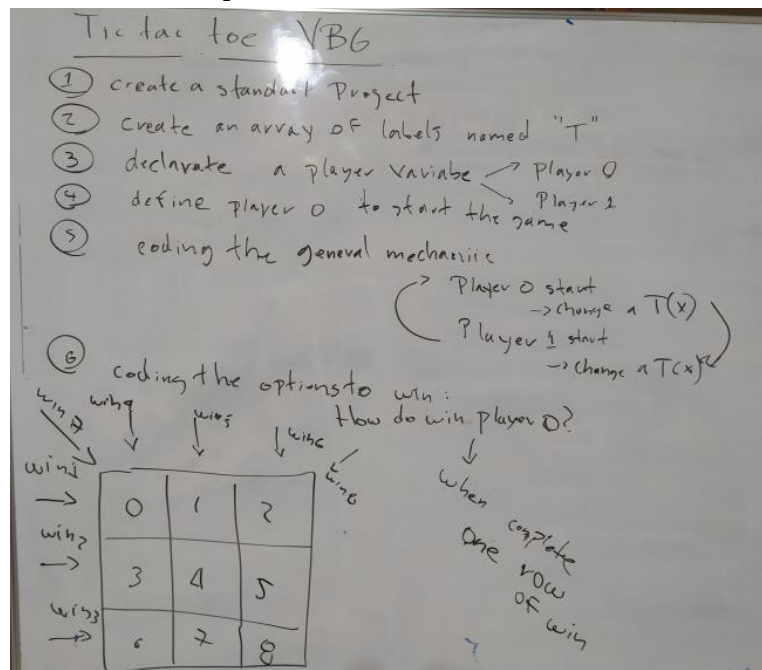 Tic tac toe VB6
1 create a standart Proyect
2 create an array of labels named "T"
3 declarate a player variabe → Player 0
→ Player 1
4 define player 0 to start the game
5 coding the general mechaniic
Player 0 start
→ change a T(x)
Player 1 start
→ change a T(x)
6 coding the options to win:
How do win player 0?
when complete
one row
of win
win7 win4 win5 win6 win8
win1 → 0 1 2
win2 → 3 4 5
win3 → 6 7 8